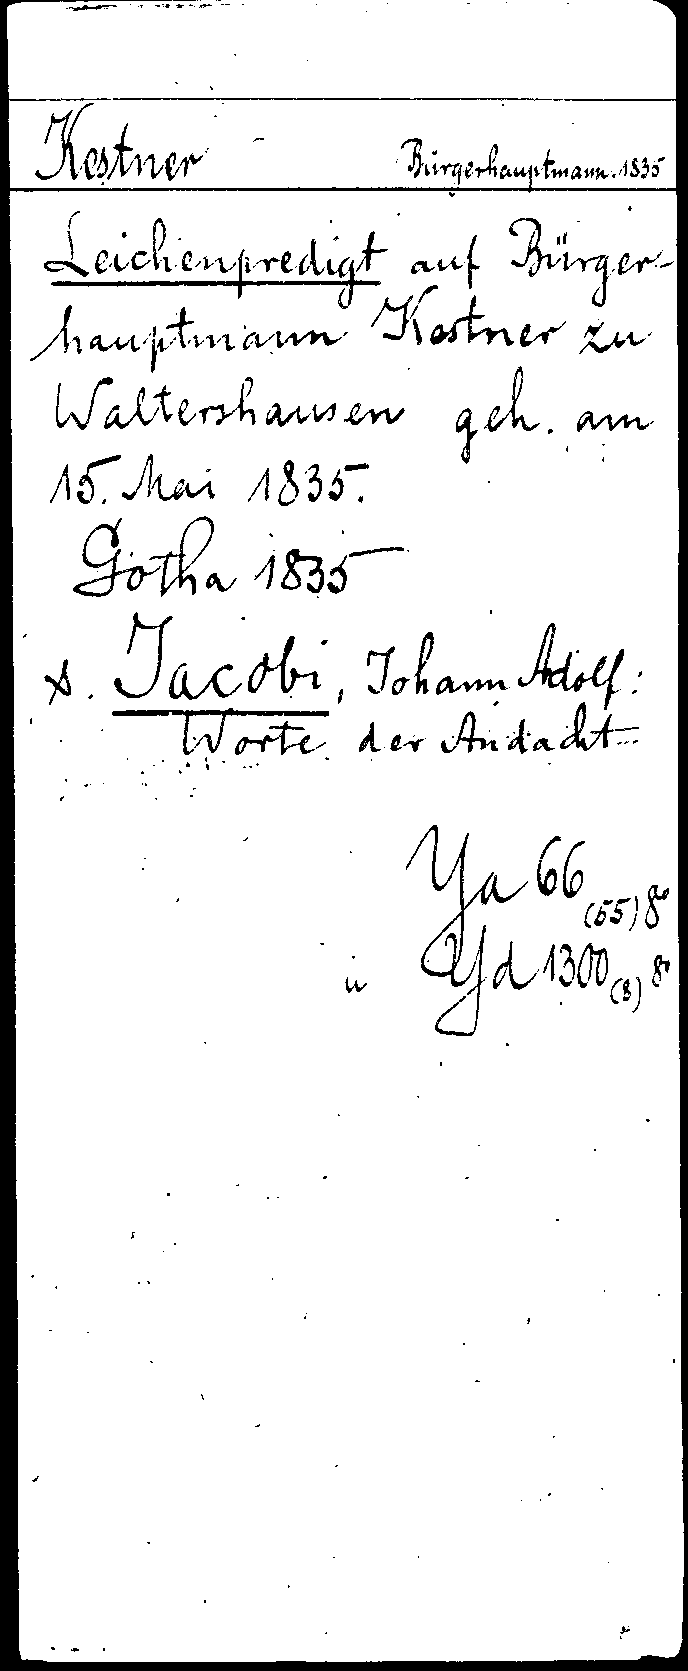 Kestner Bürgerhauptmann. 1835
Leichenpredigt auf Bürger-
hauptmann Kestner zu
Waltershausen geh. am
15. Mai 1835.
Gotha 1835
s. Jacobi, Johann Adolf:
Worte der Andacht
Ya 66 (55) 8°
u Yd 1300 (8) 8°